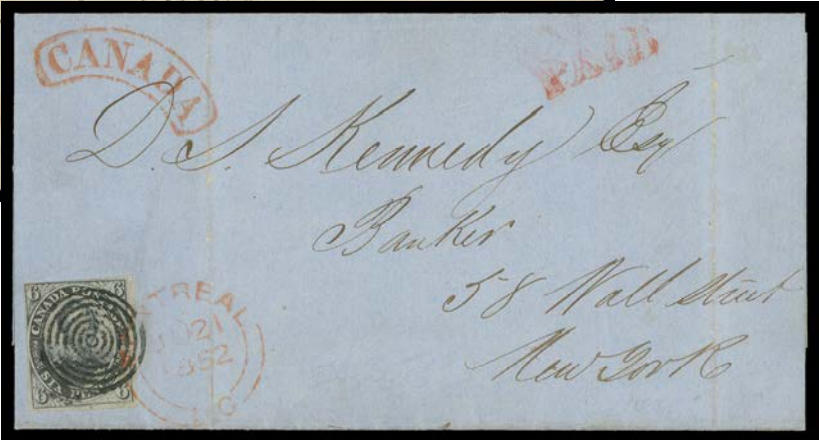 CANADA
PAID
D. S. Kennedy Esq
Banker
58 Wall Street
New York
6 6
CANADA POSTAGE
SIX PENCE
6 6
MONTREAL
21
1852